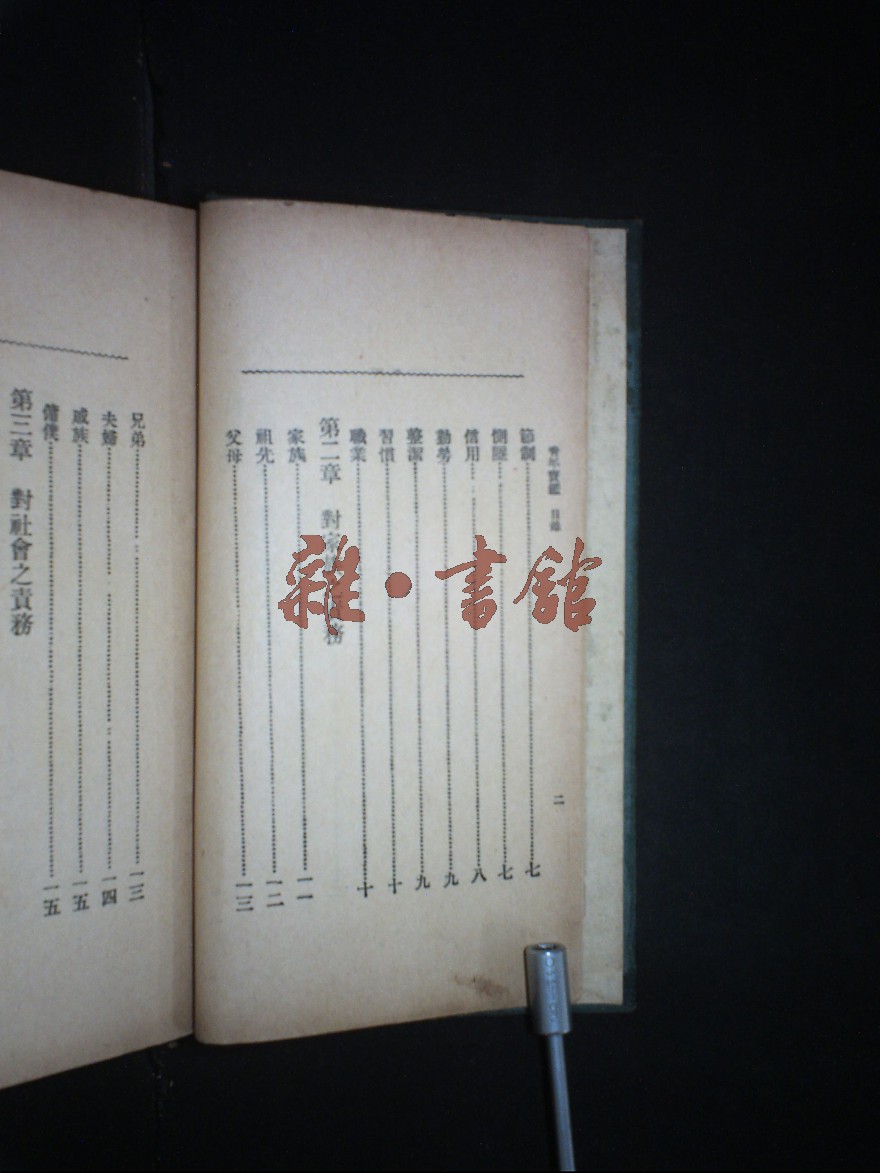 青年寶鑑 目錄 二
節制 七
惻隱 七
信用 八
勤勞 九
整潔 九
習慣 十
職業 十
第二章 對家族之責務
家族 一一
祖先 一二
父母 一三
兄弟 一三
夫婦 一四
戚族 一五
傭僕 一五
第三章 對社會之責務
雜·書館